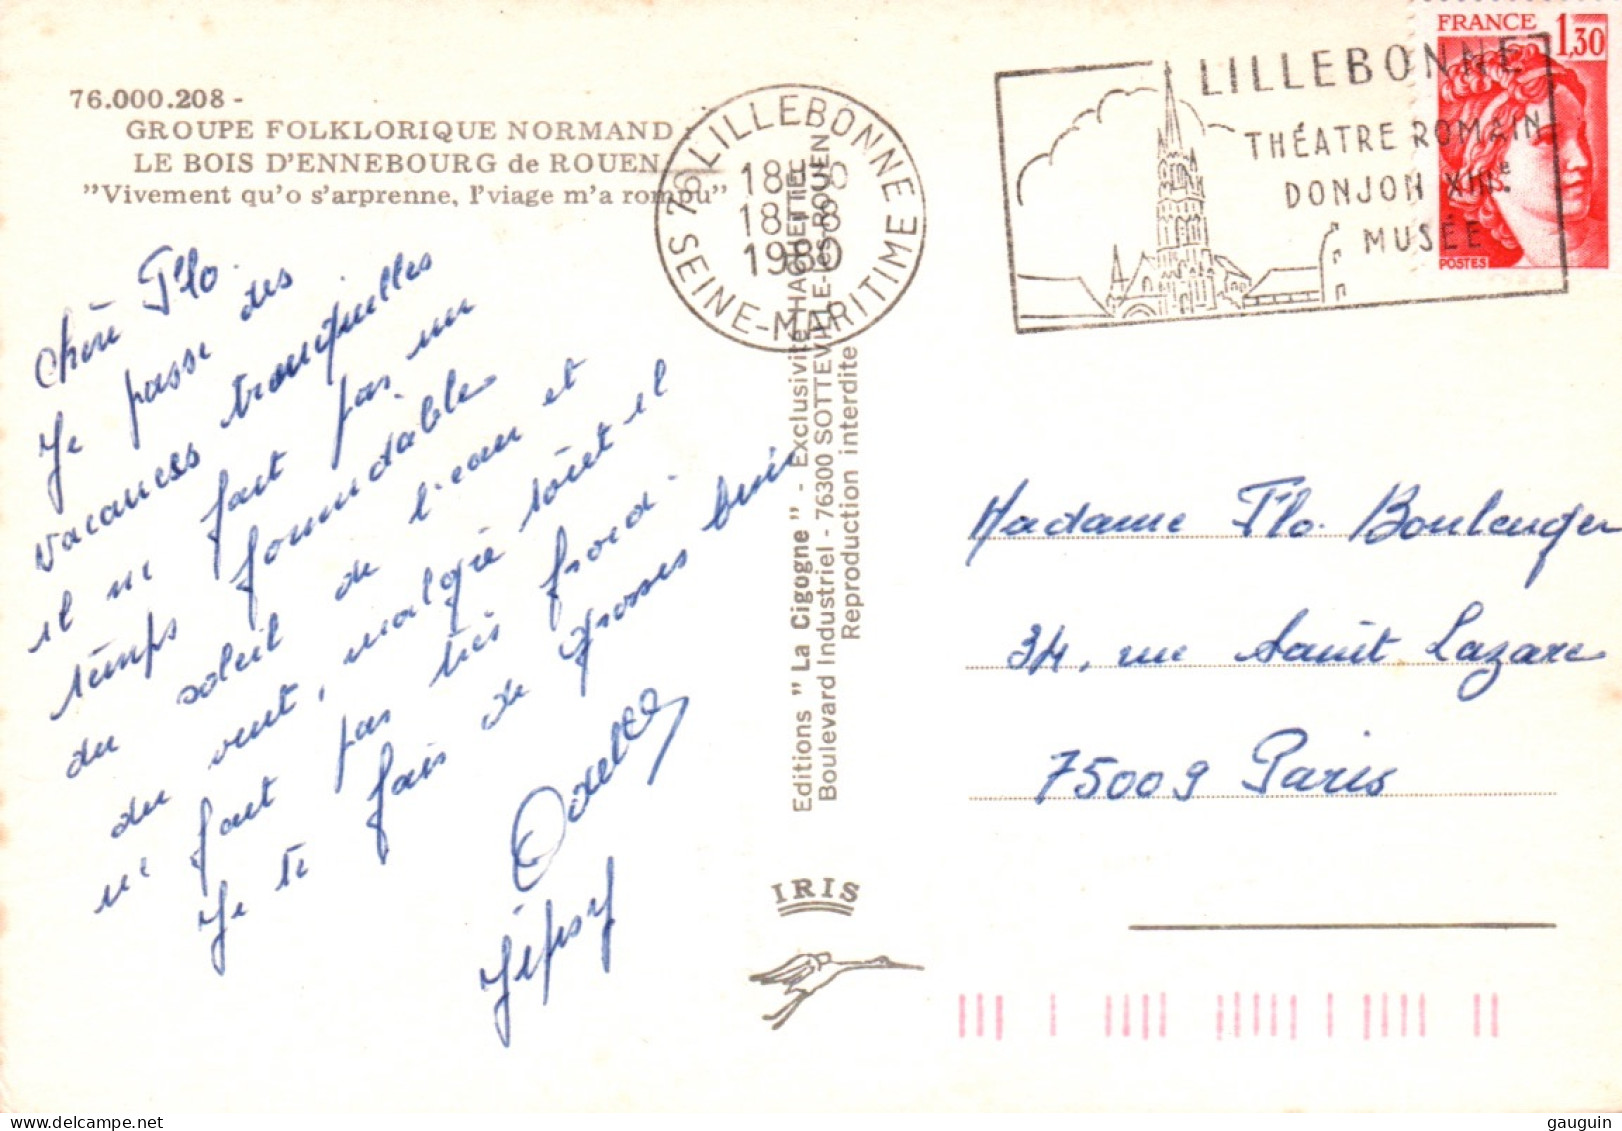 76.000.208 -
GROUPE FOLKLORIQUE NORMAND
LE BOIS D'ENNEBOURG de ROUEN
"Vivement qu'o s'arprenne, l'viage m'a rompu"
Chère Flo.
Je passe des
vacances tranquilles
il ne fait pas un
temps formidable
du soleil de l'eau et
du vent, malgré tout il
ne fait pas très froid.
Je te fais de grosses bises
Odette
Jepsy
76 LILLEBONNE
18H30
18-8
1980
SEINE-MARITIME
LILLEBONNE
THÉATRE ROMAIN
DONJON XIIIe.
MUSÉE
FRANCE
1,30
POSTES
Editions "La Cigogne" - Exclusivité CHARLETTIE
Boulevard Industriel - 76300 SOTTEVILLE-LES-ROUEN
Reproduction interdite
IRIS
Madame Flo. Boulenger
34, rue Saint Lazare
75009 Paris
gauguin © delcampe.net